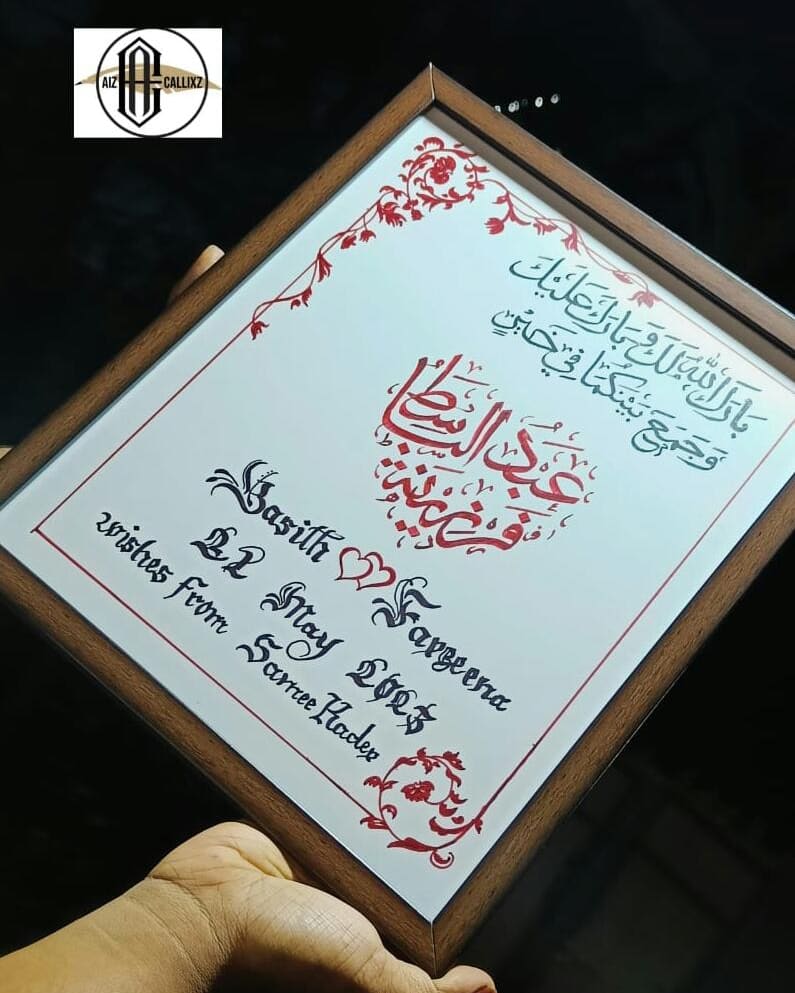 AIZ AC CALLIXZ
بَارَكَ اللهُ لَكَ وَبَارَكَ عَلَيْكَ
وَجَمَعَ بَيْنَكُمَا فِي خَيْرٍ
عَبْدُ الْبَاسِطْ
فرزينة
Basith Farzeena
21 May 2023
wishes from Samee Kader